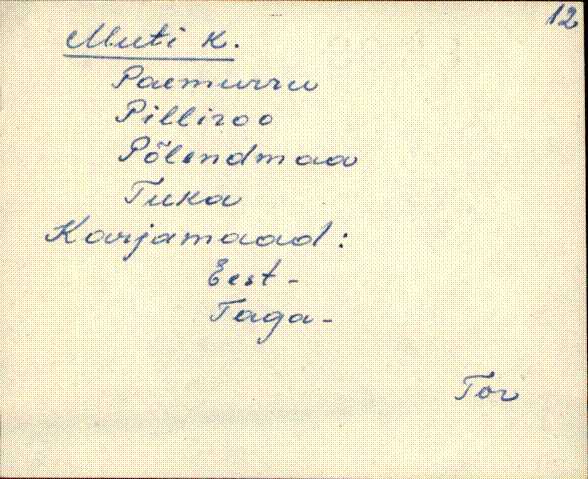 12
Muti k.
Paemurru
Pilliroo
Põlendmaa
Tuka
Karjamaad:
Eest-
Taga-
Tor